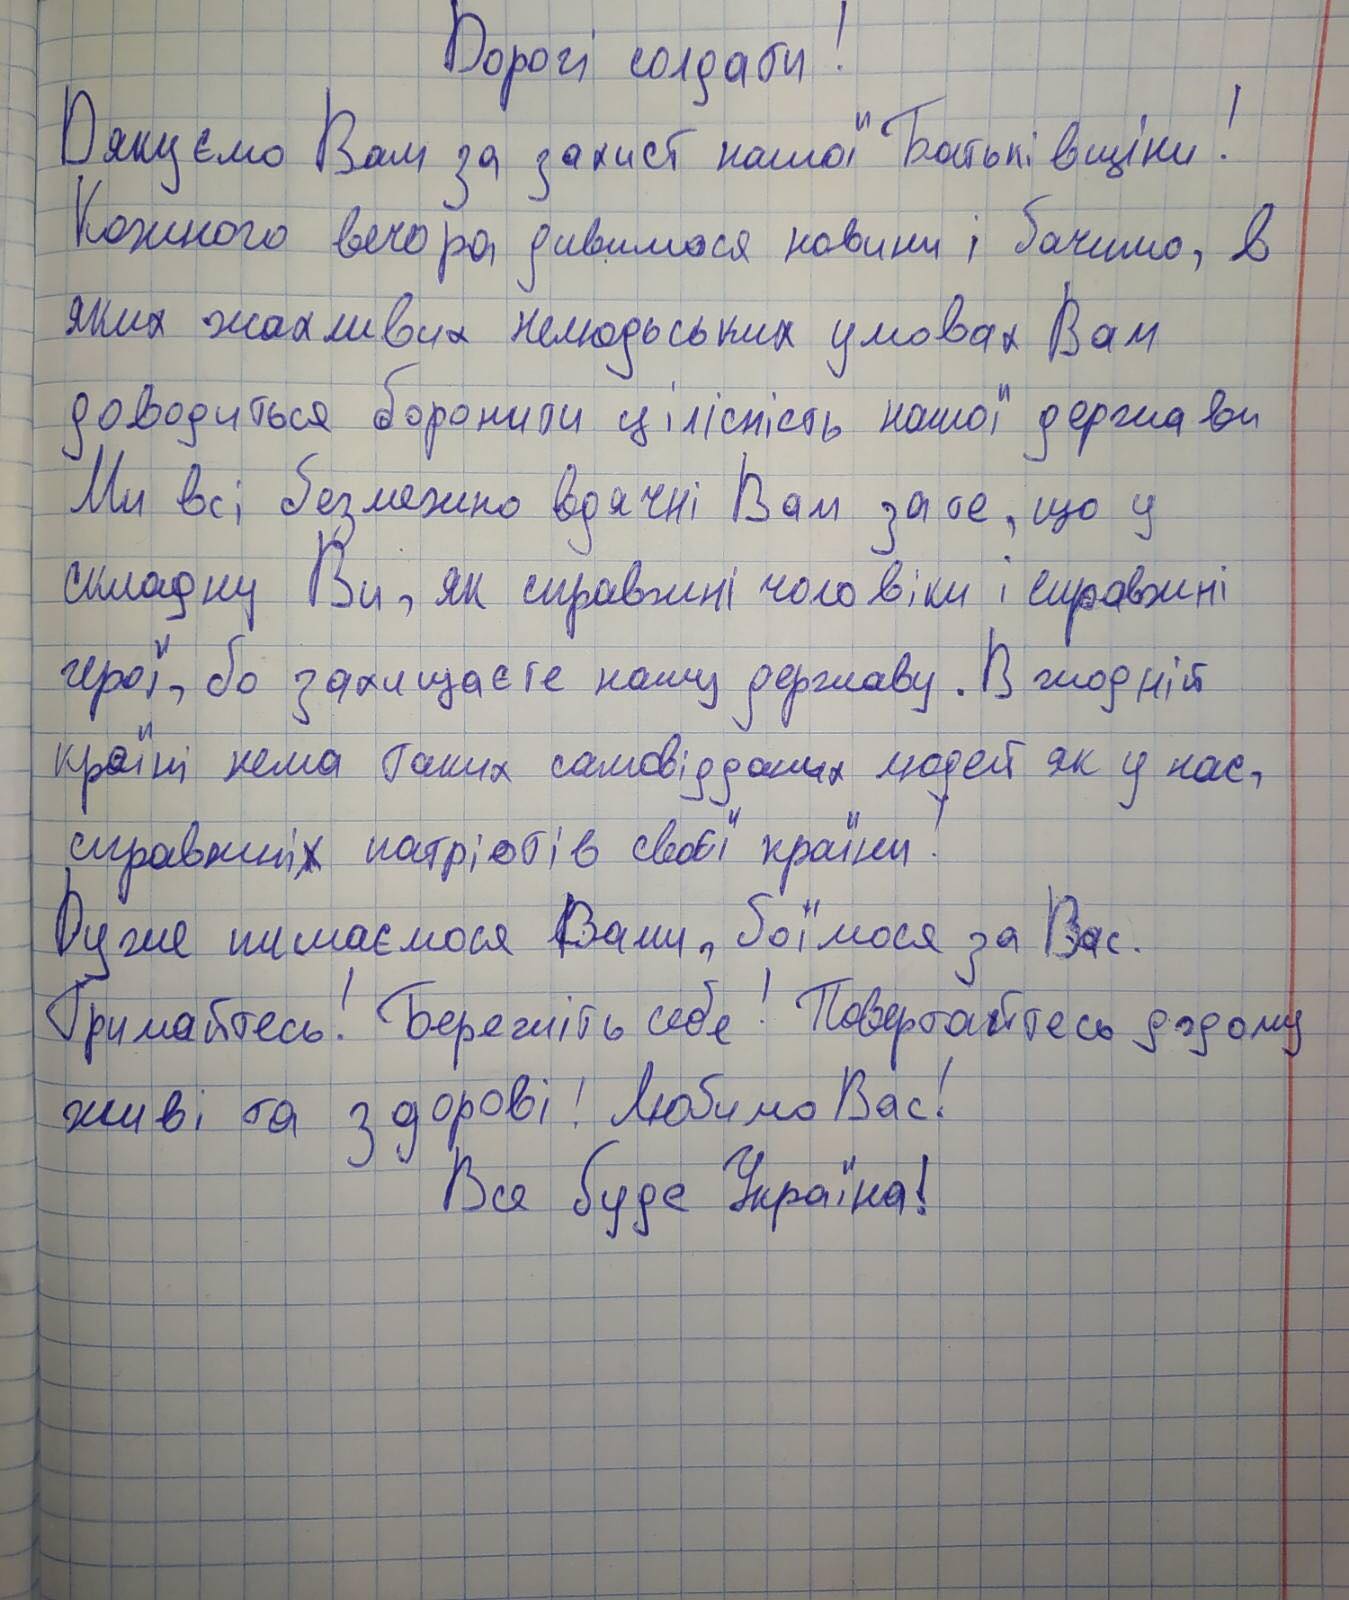 Дорогі солдати!
Дякуємо Вам за захист нашої Батьківщіни!
Кожного вечора дивимося новини і бачимо, в
яких жахливих нелюдьських умовах Вам
доводиться боронити цілісність нашої держави
Ми всі безмежно вдячні Вам за те, що у
складну Ви, як справжні чоловіки і справжні
герої, бо захищаєте нашу державу. В жодній
країні нема таких самовідданих людей як у нас,
справжніх патріотів своєї країни!
Дуже пишаємося Вами, боїмося за Вас.
Тримайтесь! Бережіть себе! Повертайтесь додому
живі та здорові! Любимо Вас!
Все буде Україна!